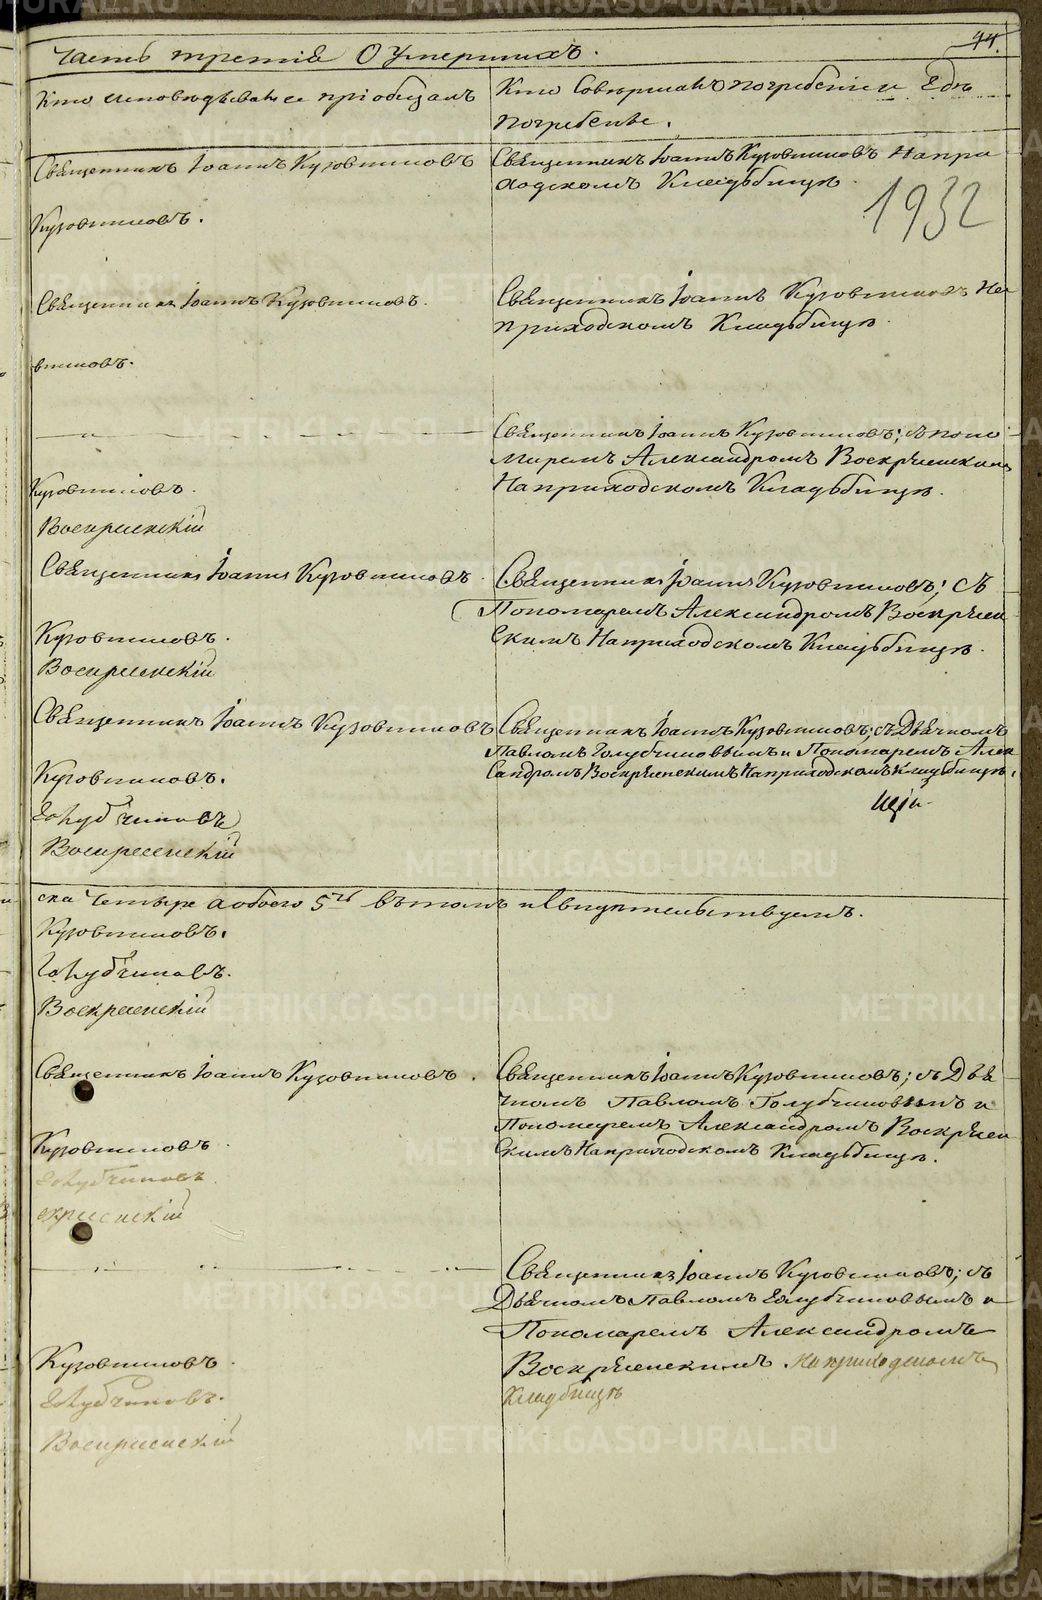 Часть третія О Умершихъ.
44.
Кто исповѣдывалъ и пріобщалъ
Кто Совершалъ погребеніе и Гдѣ
погребены.
Священникъ Іоаннъ Кузовниковъ
Священникъ Іоаннъ Кузовниковъ На при
ходскомъ Кладьбищѣ.
1932
Кузовниковъ.
Священникъ Іоаннъ Кузовниковъ.
Священникъ Іоаннъ Кузовниковъ На
приходскомъ Кладьбищѣ.
вниковъ.
Священникъ Іоаннъ Кузовниковъ; съ поно
маремъ Александромъ Воскресенскимъ
На приходскомъ Кладьбищѣ.
Кузовниковъ.
Воскресенскій
Священникъ Іоаннъ Кузовниковъ.
Священникъ Іоаннъ Кузовниковъ; Съ
Пономаремъ Александромъ Воскресен
скимъ На приходскомъ Кладьбищѣ.
Кузовниковъ.
Воскресенскій
Священникъ Іоаннъ Кузовниковъ
Священникъ Іоаннъ Кузовниковъ; съ Дьячкомъ
Павломъ Голубчиковымъ и Пономаремъ Алек
сандромъ Воскресенскимъ На приходскомъ Кладбищѣ.
Кузовниковъ.
Голубчиковъ
Воскресенскій
ска четыре а обоего 5ть въ томъ и Свидѣтельствуемъ.
Кузовниковъ.
Голубчиковъ.
Воскресенскій
Священникъ Іоаннъ Кузовниковъ.
Священникъ Іоаннъ Кузовниковъ; съ Дья
чкомъ Павломъ Голубчиковымъ и
Пономаремъ Александромъ Воскресен
скимъ На приходскомъ Кладьбищѣ.
Кузовниковъ
Голубчиковъ
скресенскій
Священникъ Іоаннъ Кузовниковъ; съ
Дьячкомъ Павломъ Голубчиковымъ и
Пономаремъ Александромъ
Воскресенскимъ. На приходскомъ
Кладбищѣ
Кузовниковъ.
Голубчиковъ.
Воскресенскій
METRIKI.GASO-URAL.RU